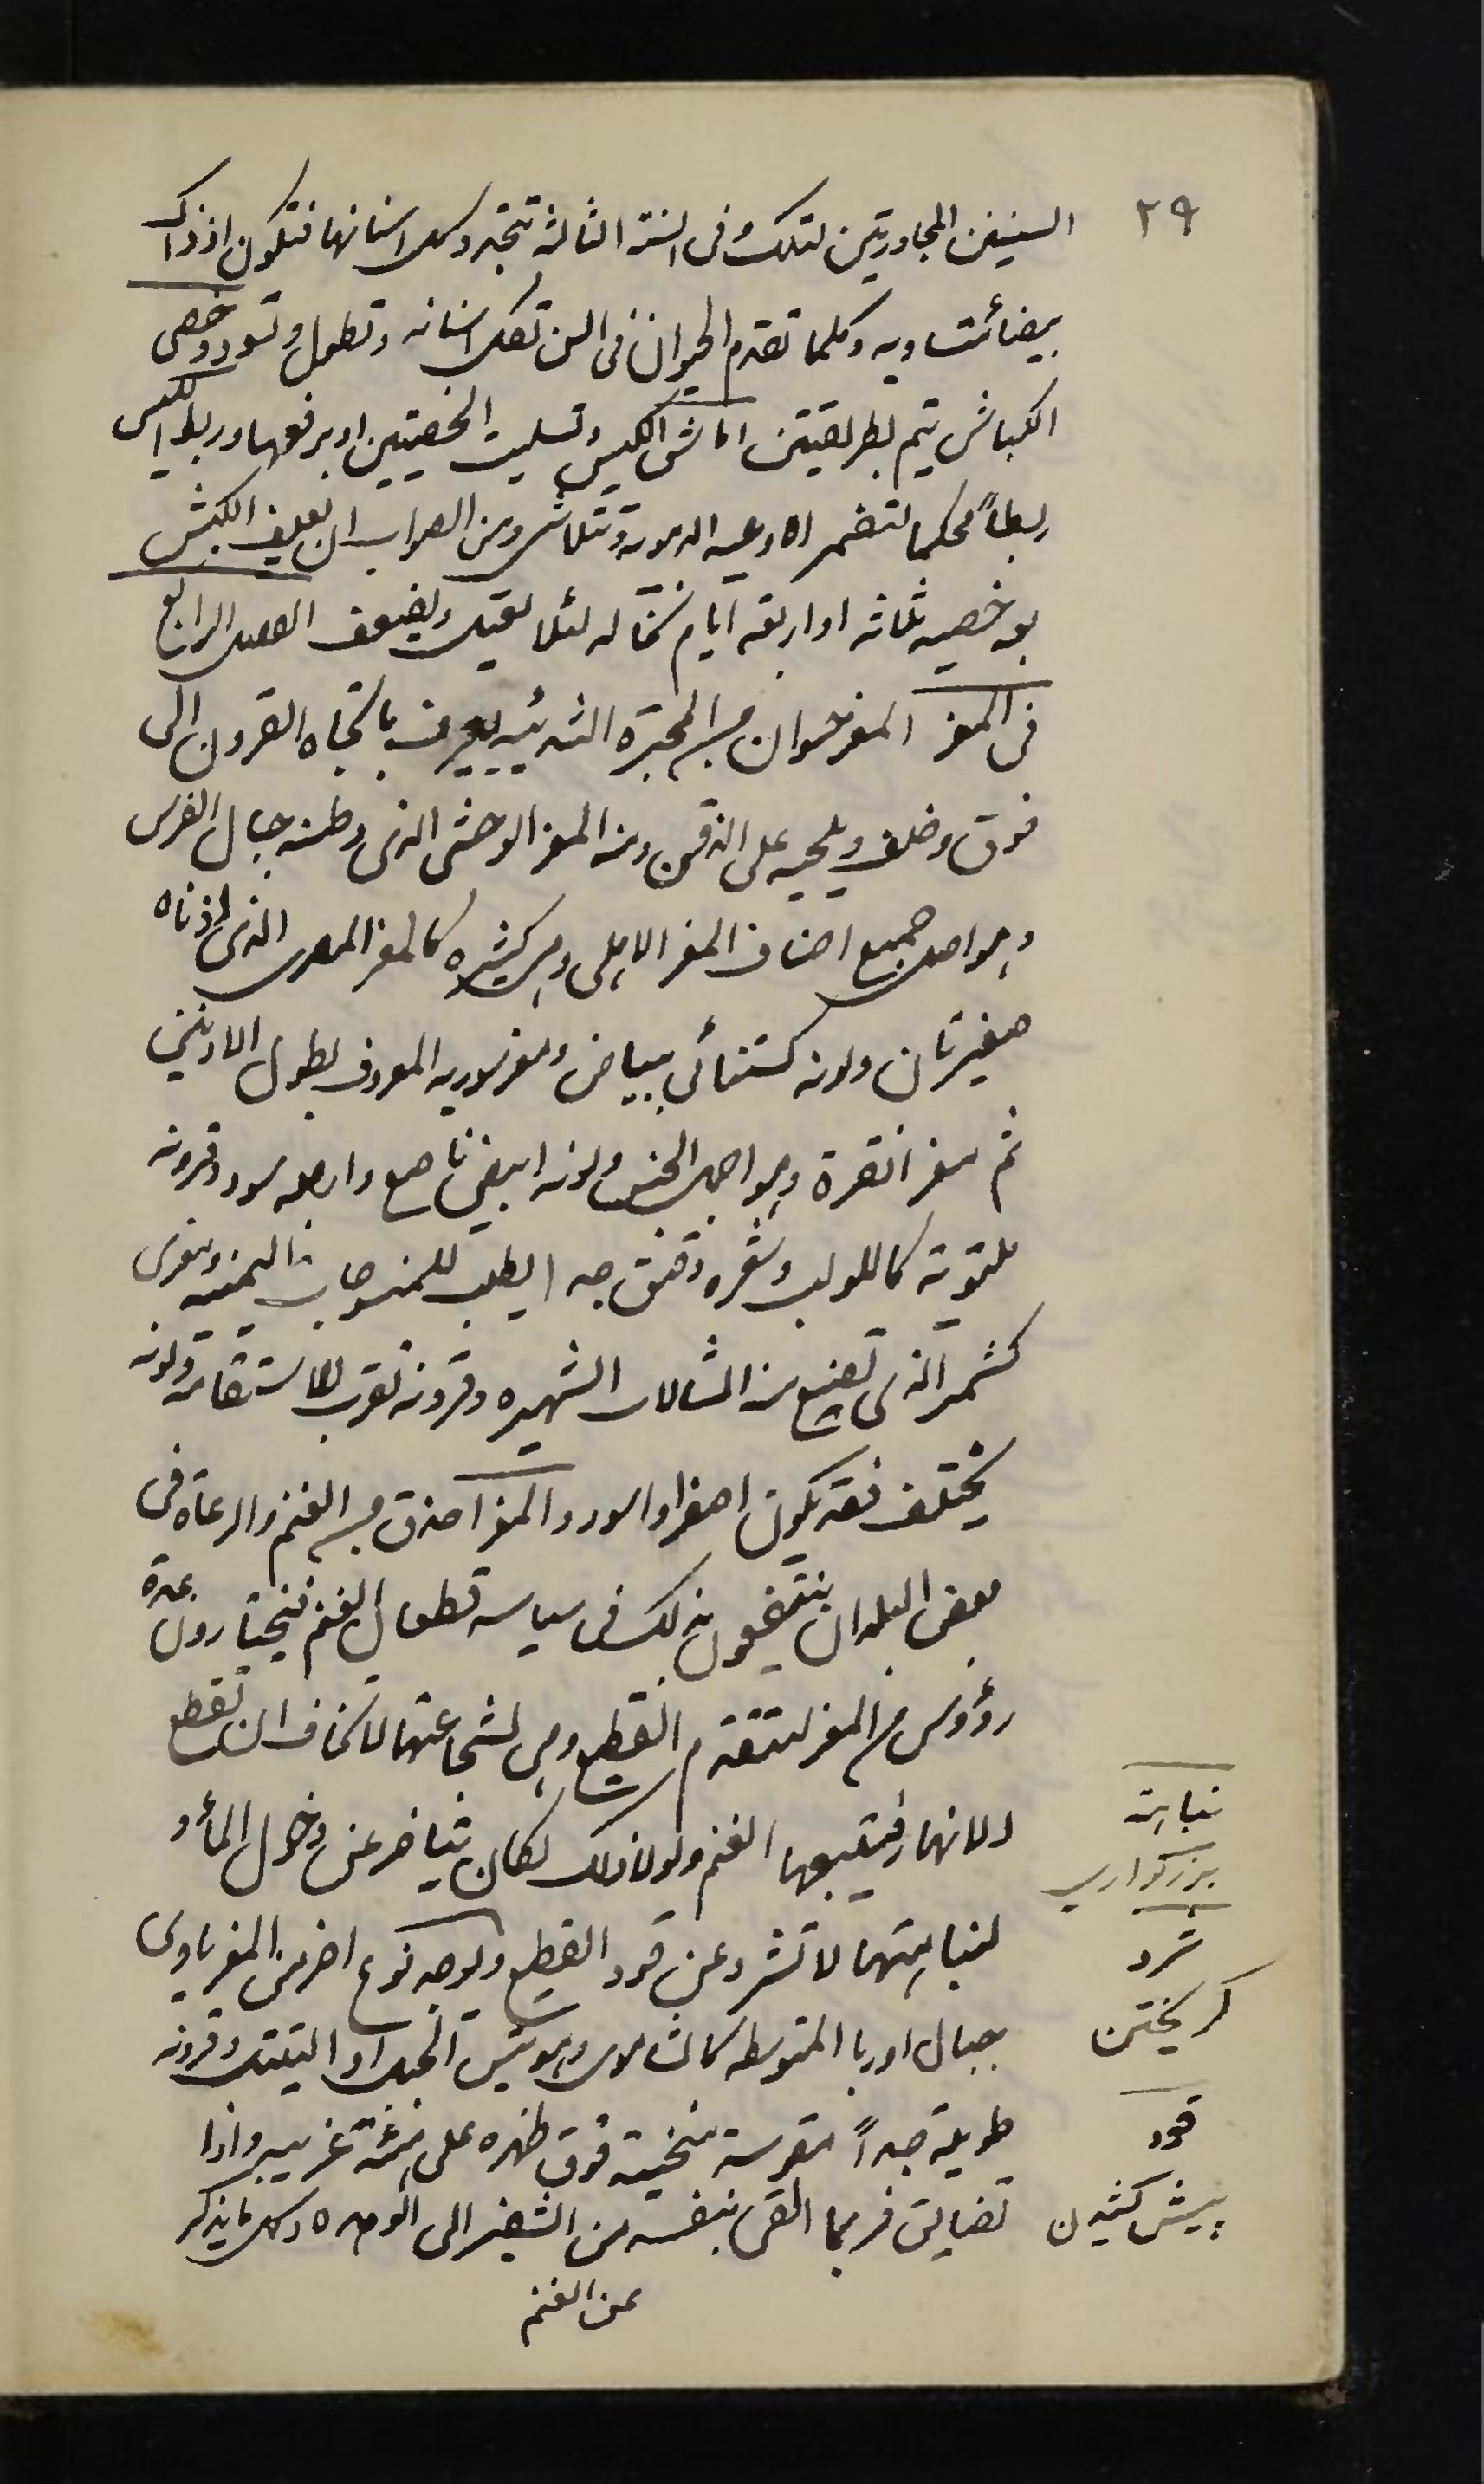 ٢٩
السنين المجاورتين لتلك وفى السنة الثالثة تتجدد كل اسنانها فتكون اذ ذاك
بيضأ متساويه وكلما تقدم الحيوان فى السن تصك اسنانه وتطول وتسود وخصى
الكباش يتم بطريقتين اما شق الكيس وتسليت الخصيتين او برفعهما وربط الكيس
ربطاً محكما لتضمر الاوعيه الدمويه وتتلاشى ومن الصواب ان يعلف الكبش
بعد خصيه ثلاثه او اربعه ايام نخاله لئلا يعتل ويضعف الفصل الرابع
فى المعز المعز حيوان من المجتره الثدييه يعرف باتجاه القرون الى
فوق وخلف وبلحيه على الذقن ومنه المعز الوحشى الذى وطنه جبال الفرس
وهو اصل جميع اصناف المعز الاهلى وهى كثيره كالمعز المصرى الذى اذناه
صغيرتان ولونه كستنائى ببياض ومعز سوريه المعروف بطول الاذنين
ثم معز انقرة وهو اجمل الجنس ولونه ابيض ناصع واربعه سود وقرونه
ملتويه كاللولب وشعره دقيق جدا يطلب للمنسوجات الثمينه ومعزى
كشمير الذى تصنع منه الشالات الشهيره وقرونه تقرب للاستقامة ولونه
يختلف فقد يكون اصفر او اسود والمعز احذق من الغنم والرعاة فى
بعض البلدان ينتفعون بذلك فى سياسه قطعان الغنم فيختارون عدة
رؤوس من المعز لتتقدم القطيع وهى لشجاعتها لا تخاف ان تقطع
الانهار فيتبعها الغنم ولولا ذلك لكان يتأخر عن دخول المأ و
لنباهتها لا تشرد عن قود القطيع ويوجد نوع اخر من المعز ياوى
جبال اوربا المتوسطه كالشاموى وهو تيس الجبل او التيتل وقرونه
طويلة جداً متقوسة منحنية فوق ظهره على هيئة غريبه واذا
تضايق فربما القى بنفسه من الشفير الى الوهده وكل ما يذكر
عن الغنم
نباهة
بزرگواری
شرد
گریختن
قود
پیش کشیدن